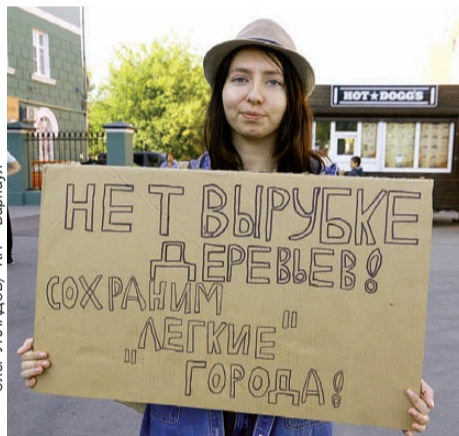 HOT★DOGG'S
НЕТ ВЫРУБКЕ
ДЕРЕВЬЕВ!
СОХРАНИМ
"ЛЕГКИЕ"
ГОРОДА!